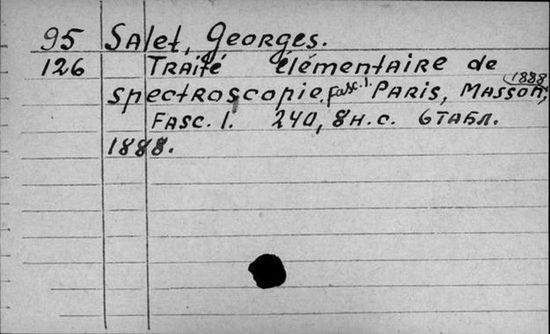 95 Salet, Georges.
126 Traité élémentaire de
spectroscopie. fasc. 1. Paris, Masson, 1888
Fasc. 1. 240, 8 н.с. 6 табл.
1888.